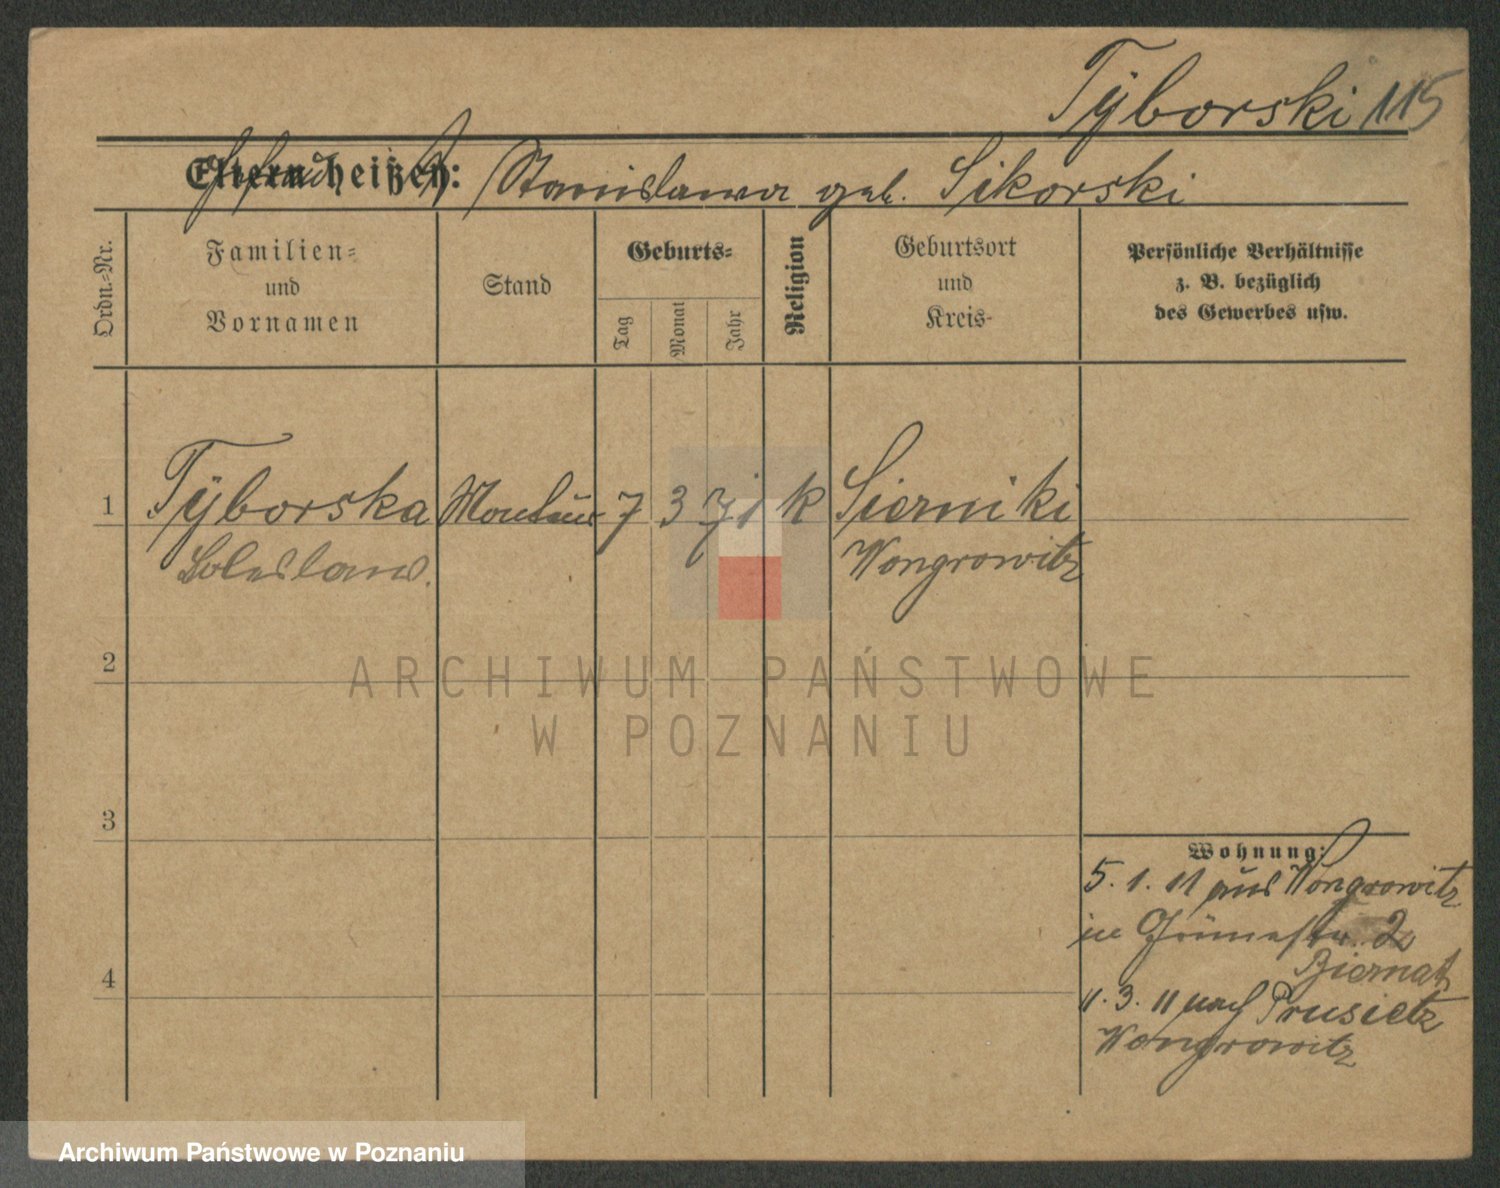 Tÿborski 115
Eltern heißen: Stanislawa geb. Sikorski
Ordn.-Nr.
Familien-
und
Vornamen
Stand
Geburts-
Tag
Monat
Jahr
Religion
Geburtsort
und
Kreis-
Persönliche Verhältnisse
z. B. bezüglich
des Gewerbes usw.
1 Tÿborska 7 3 k Sierniki
Boleslaus. Wongrowitz
2
3
4
Wohnung:
5. 1. 11 aus Wongrowitz
in 2
Biernat
11. 3. 11 nach Prusietz
Wongrowitz
ARCHIWUM PAŃSTWOWE
W POZNANIU
Archiwum Państwowe w Poznaniu